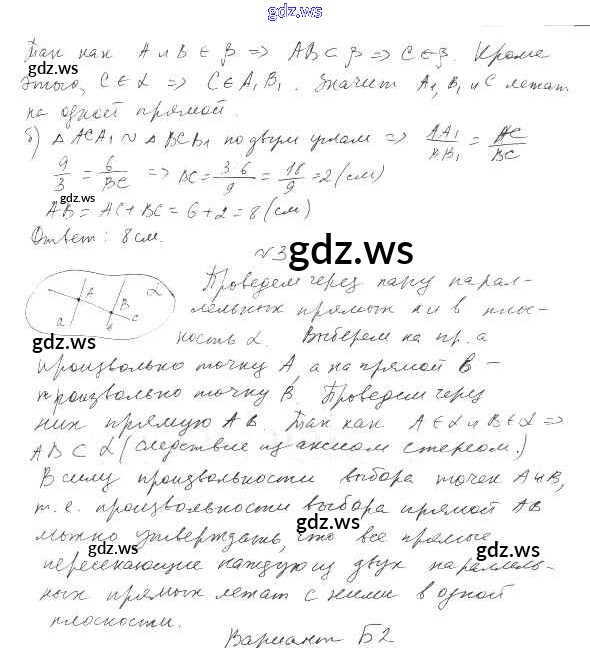 gdz.ws
Так как A и B ∈ β => AB ⊂ β => C ∈ β. Кроме
gdz.ws
этого, C ∈ α => C ∈ A₁B₁. Значит A₁, B₁ и C лежат
на одной прямой.
б) △ ACA₁ ~ △ BCB₁ по двум углам => AA₁/BB₁ = AC/BC
9/3 = 6/BC => BC = 3·6/9 = 18/9 = 2 (см)
gdz.ws
AB = AC + BC = 6 + 2 = 8 (см)
Ответ: 8 см.
gdz.ws
№3
A B α a b c
Проведем через пару парал-
лельных прямых a и в плос-
gdz.ws
кость α. Выберем на пр. a
произвольно точку A, а на прямой в –
произвольно точку B. Проведем через
них прямую AB. Так как A ∈ α и B ∈ α =>
AB ⊂ α (следствие из аксиом стереом.)
В силу произвольности выбора точек A и B,
т. е. произвольности выбора прямой AB
gdz.ws
можно утверждать, что все прямые
gdz.ws gdz.ws
пересекающие каждую из двух параллель-
ных прямых лежат с ними в одной
плоскости.
Вариант Б2